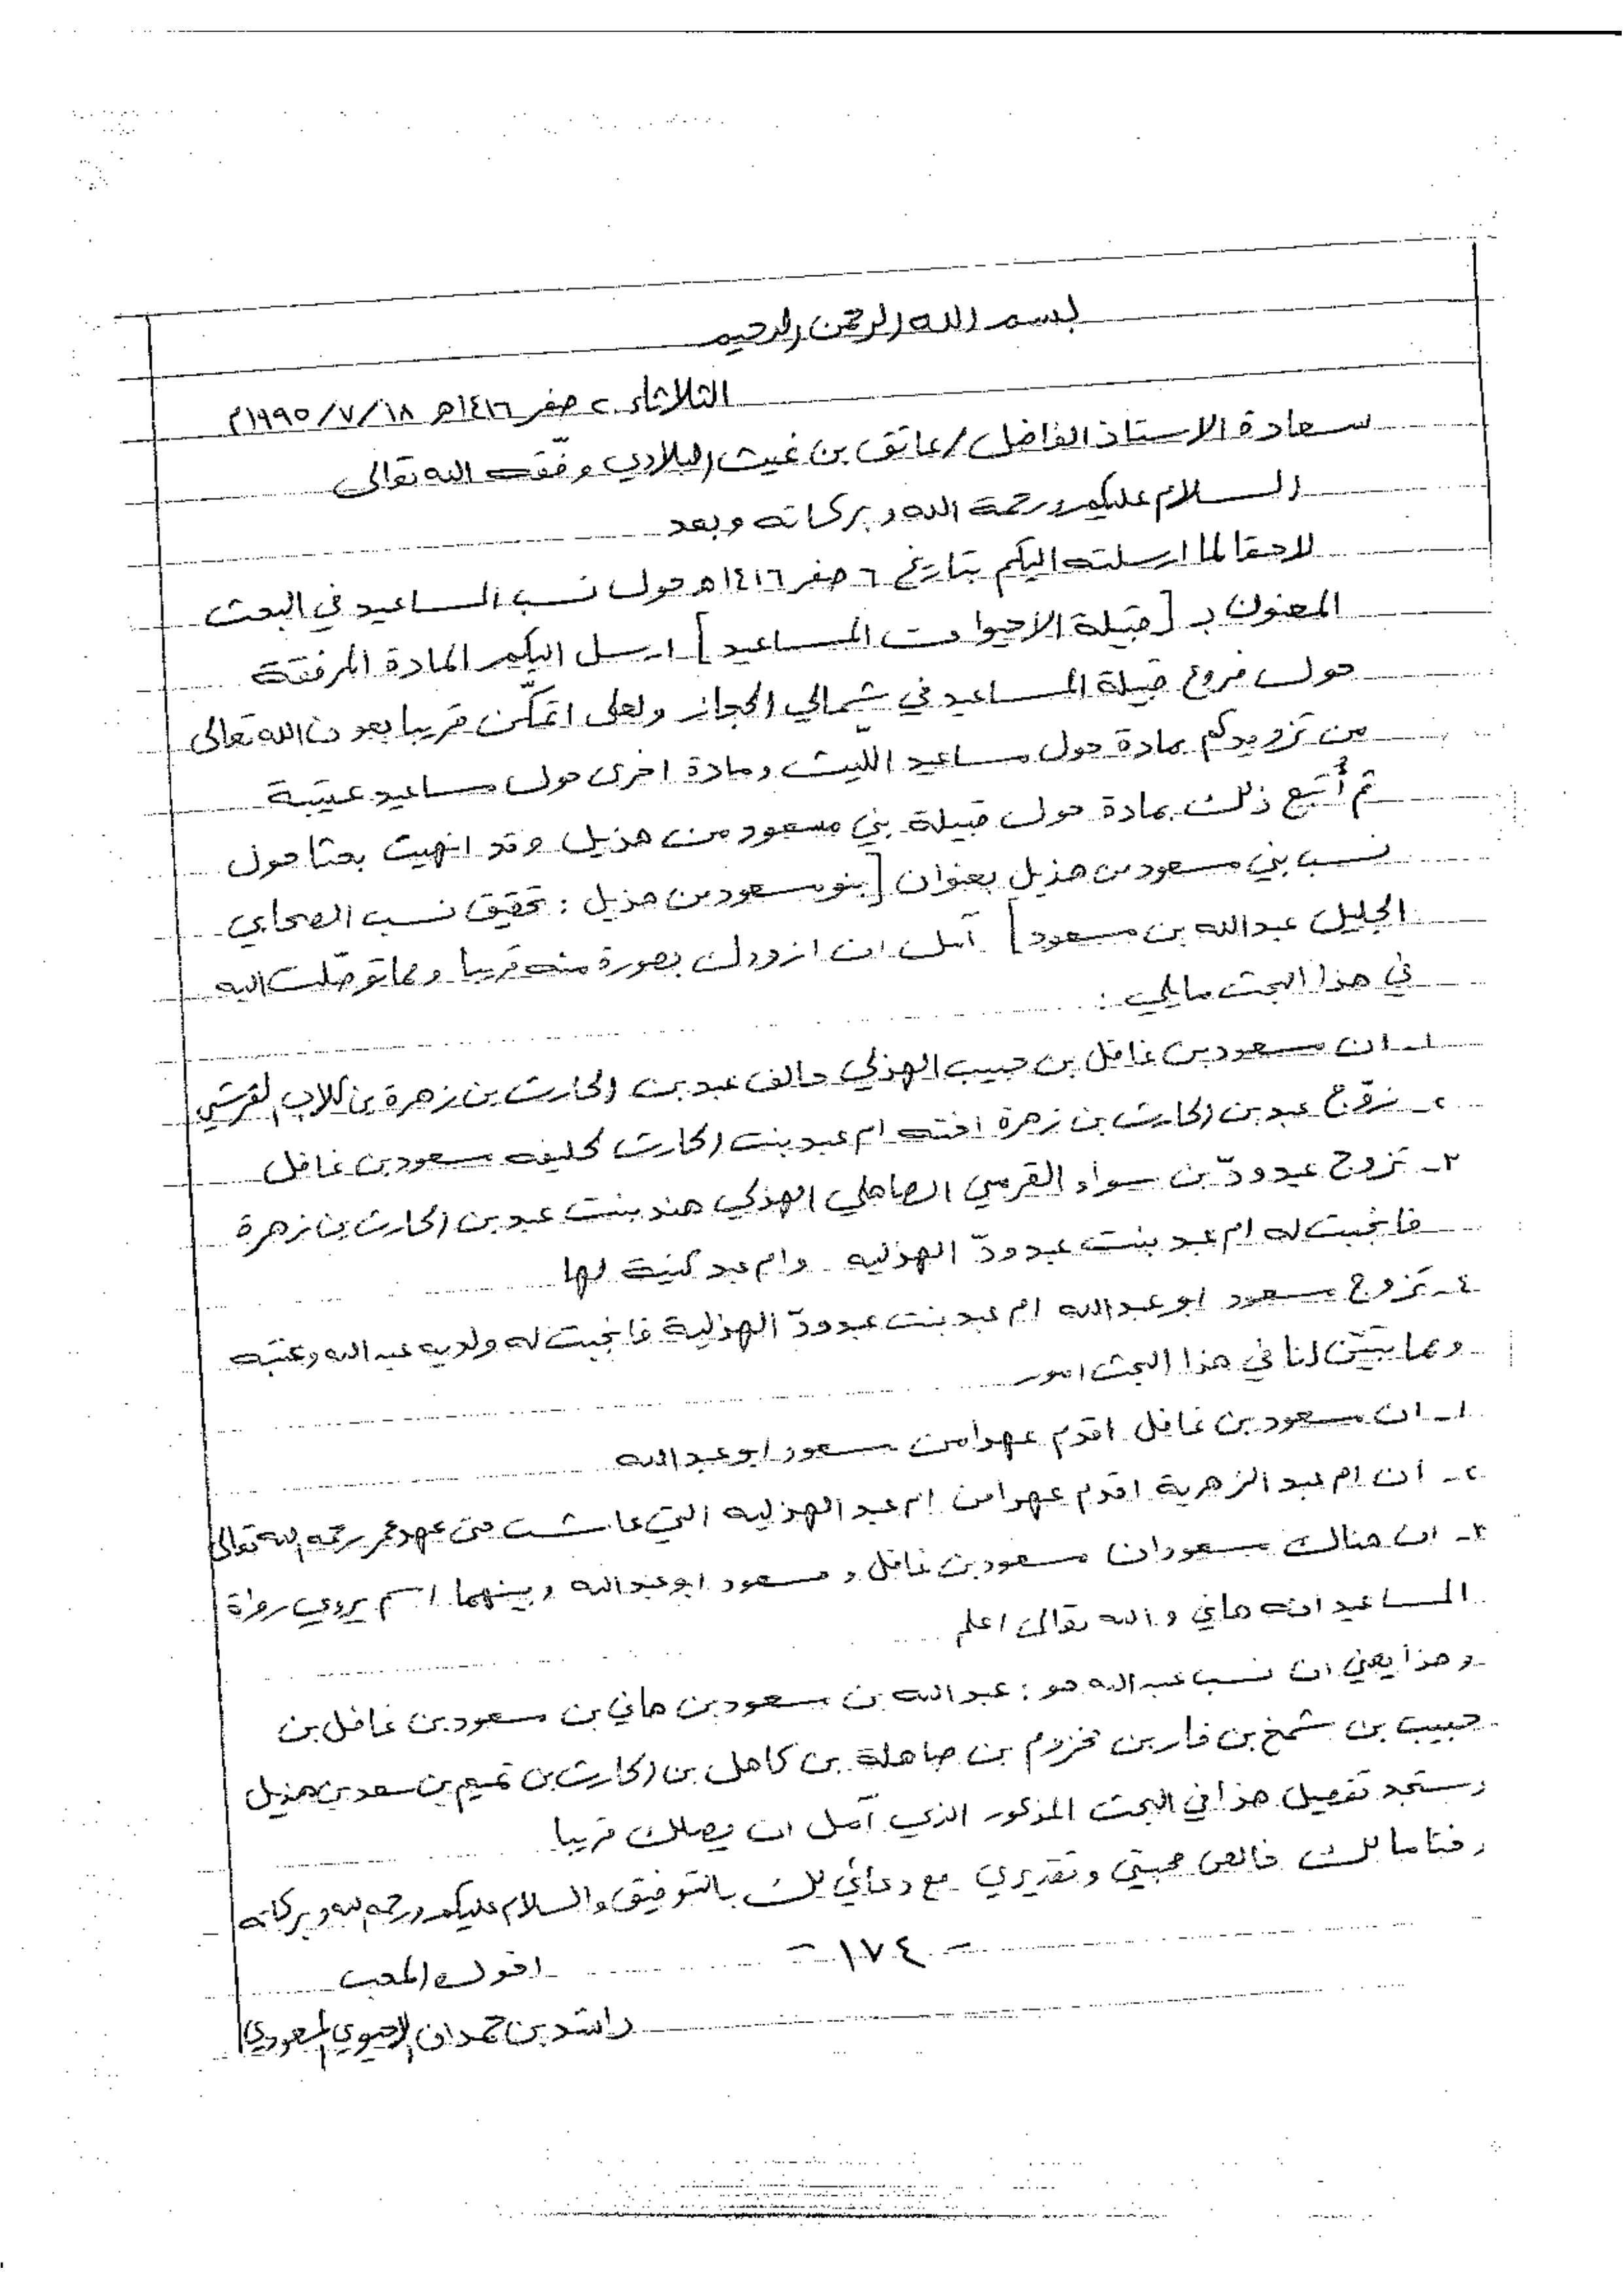 بسم الله الرحمن الرحيم
الثلاثاء ٢٠ صفر ١٤١٦هـ ١٨/٧/١٩٩٥م
سعادة الاستاذ الفاضل/عاتق بن غيث البلادي وفّقه الله تعالى
السلام عليكم ورحمة الله وبركاته وبعد
لاحقا لما ارسلته اليكم بتاريخ ٦ صفر ١٤١٦هـ حول نسب المساعيد في البحث
المعنون بـ [قبيلة الاحيوات المساعيد] ارسل اليكم المادة المرفقة
حول فروع قبيلة المساعيد في شمالي الحجاز ولعلى اتمكّن قريبا بعون الله تعالى
من تزويدكم بمادة حول مساعيد اللّيث ومادة اخرى حول مساعيد عتيبة
ثم أُتبع ذلك بمادة حول قبيلة بني مسعود من هذيل وقد انهيت بحثا حول
نسب بني مسعود من هذيل بعنوان [بنو مسعود من هذيل : تحقيق نسب الصحابي
الجليل عبدالله بن مسعود] آمل ان ازودك بصورة منه قريبا ومما توصّلت اليه
في هذا البحث مايلي :
١ـ ان مسعود بن غافل بن حبيب الهذلي حالف عبد بن الحارث بن زهرة بن كلاب القرشي
٢ـ زوّج عبد بن الحارث بن زهرة اخته ام عبد بنت الحارث لحليفه مسعود بن غافل
٣ـ تزوج عبدودّ بن سواء القرمي الصاهلي الهذلي هند بنت عبد بن الحارث بن زهرة
فانجبت له ام عبد بنت عبدودّ الهذليه وام عبد كنية لها
٤ـ تزوج مسعود ابو عبدالله ام عبد بنت عبدودّ الهذلية فانجبت له ولديه عبدالله وعتبه
ومما يتبيّن لنا في هذا البحث امور
١ـ ان مسعود بن غافل اقدم عهدا من مسعود ابو عبدالله
٢ـ ان ام عبد الزهرية اقدم عهدا من ام عبد الهذليه التي عاشت حتى عهد عمر رحمه الله تعالى
٣ـ ان هناك مسعودان مسعود بن غافل ومسعود ابو عبدالله وبينهما اسم يروي رواة
المساعيد انه هاني والله تعالى اعلم
وهذا يعني ان نسب عبدالله هو : عبدالله بن مسعود بن هاني بن مسعود بن غافل بن
حبيب بن شمخ بن فار بن مخزوم بن صاهلة بن كاهل بن الحارث بن تميم بن سعد بن هذيل
وستجد تفصيل هذا في البحث المذكور الذي آمل ان يصلك قريبا
وختاما لك خالص محبتي وتقديري مع دعائي لك بالتوفيق والسلام عليكم ورحمه الله وبركاته
- ١٧٤ -
اخوك المحب
راشد بن حمدان الاحيوي المسعودي